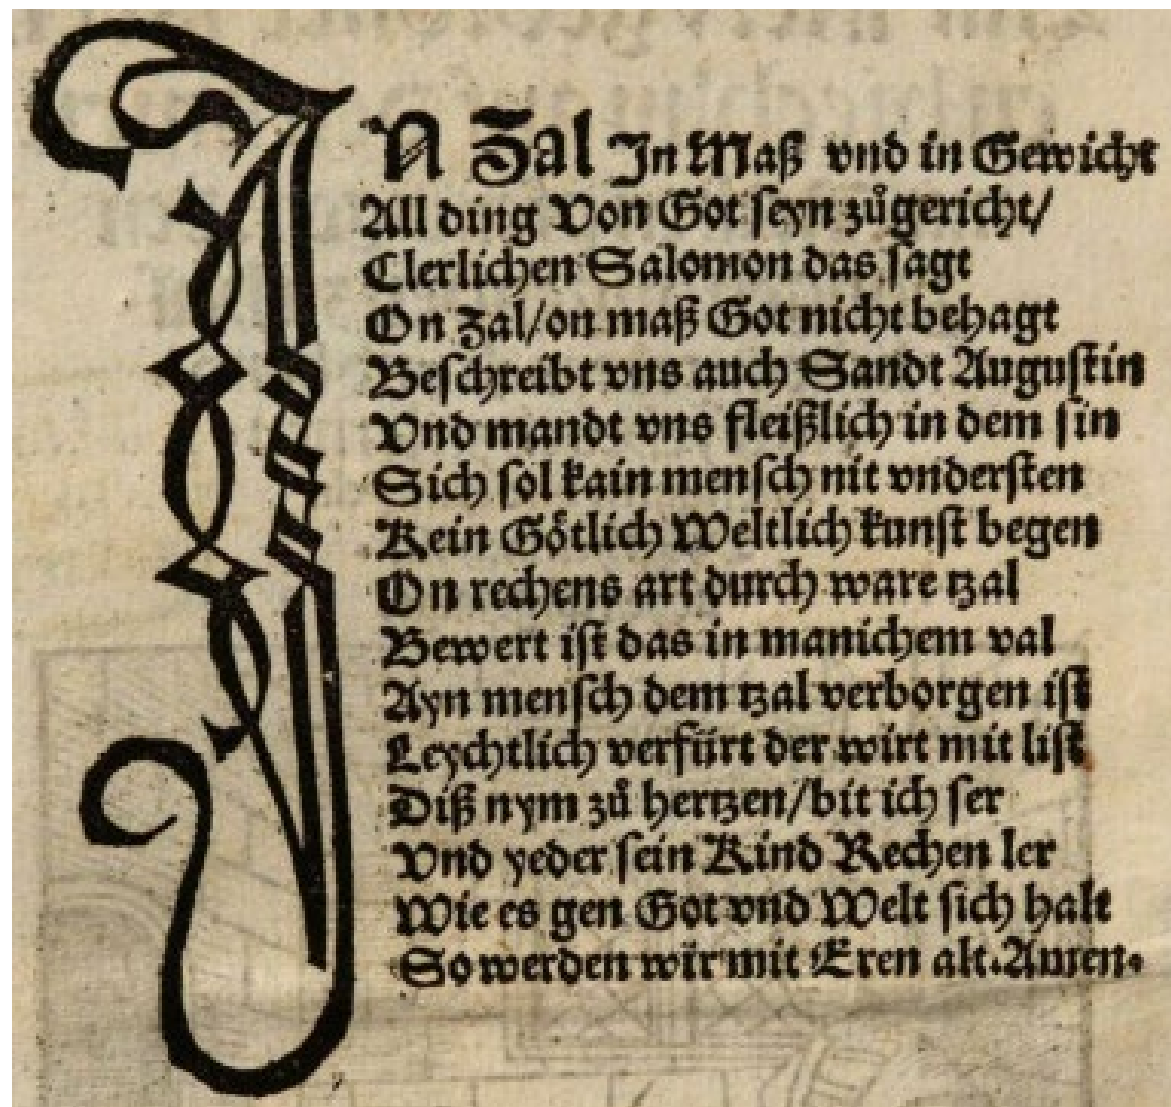 IN Zal In Maß vnd in Gewicht
All ding Von Got seyn zůgericht/
Clerlichen Salomon das sagt
On zal/on maß Got nicht behagt
Beschreibt vns auch Sandt Augustin
Vnd mandt vns fleißlich in dem sin
Sich sol kain mensch nit vndersten
Kein Gőtlich Weltlich kunst begen
On rechens art durch ware tzal
Bewert ist das in manichem val
Ayn mensch dem tzal verborgen ist
Leychtlich verfürt der wirt mit list
Diß nym zů hertzen/bit ich ser
Vnd yeder sein Kind Rechen ler
Wie es gen Got vnd Welt sich halt
So werden wir mit Eren alt. Amen.